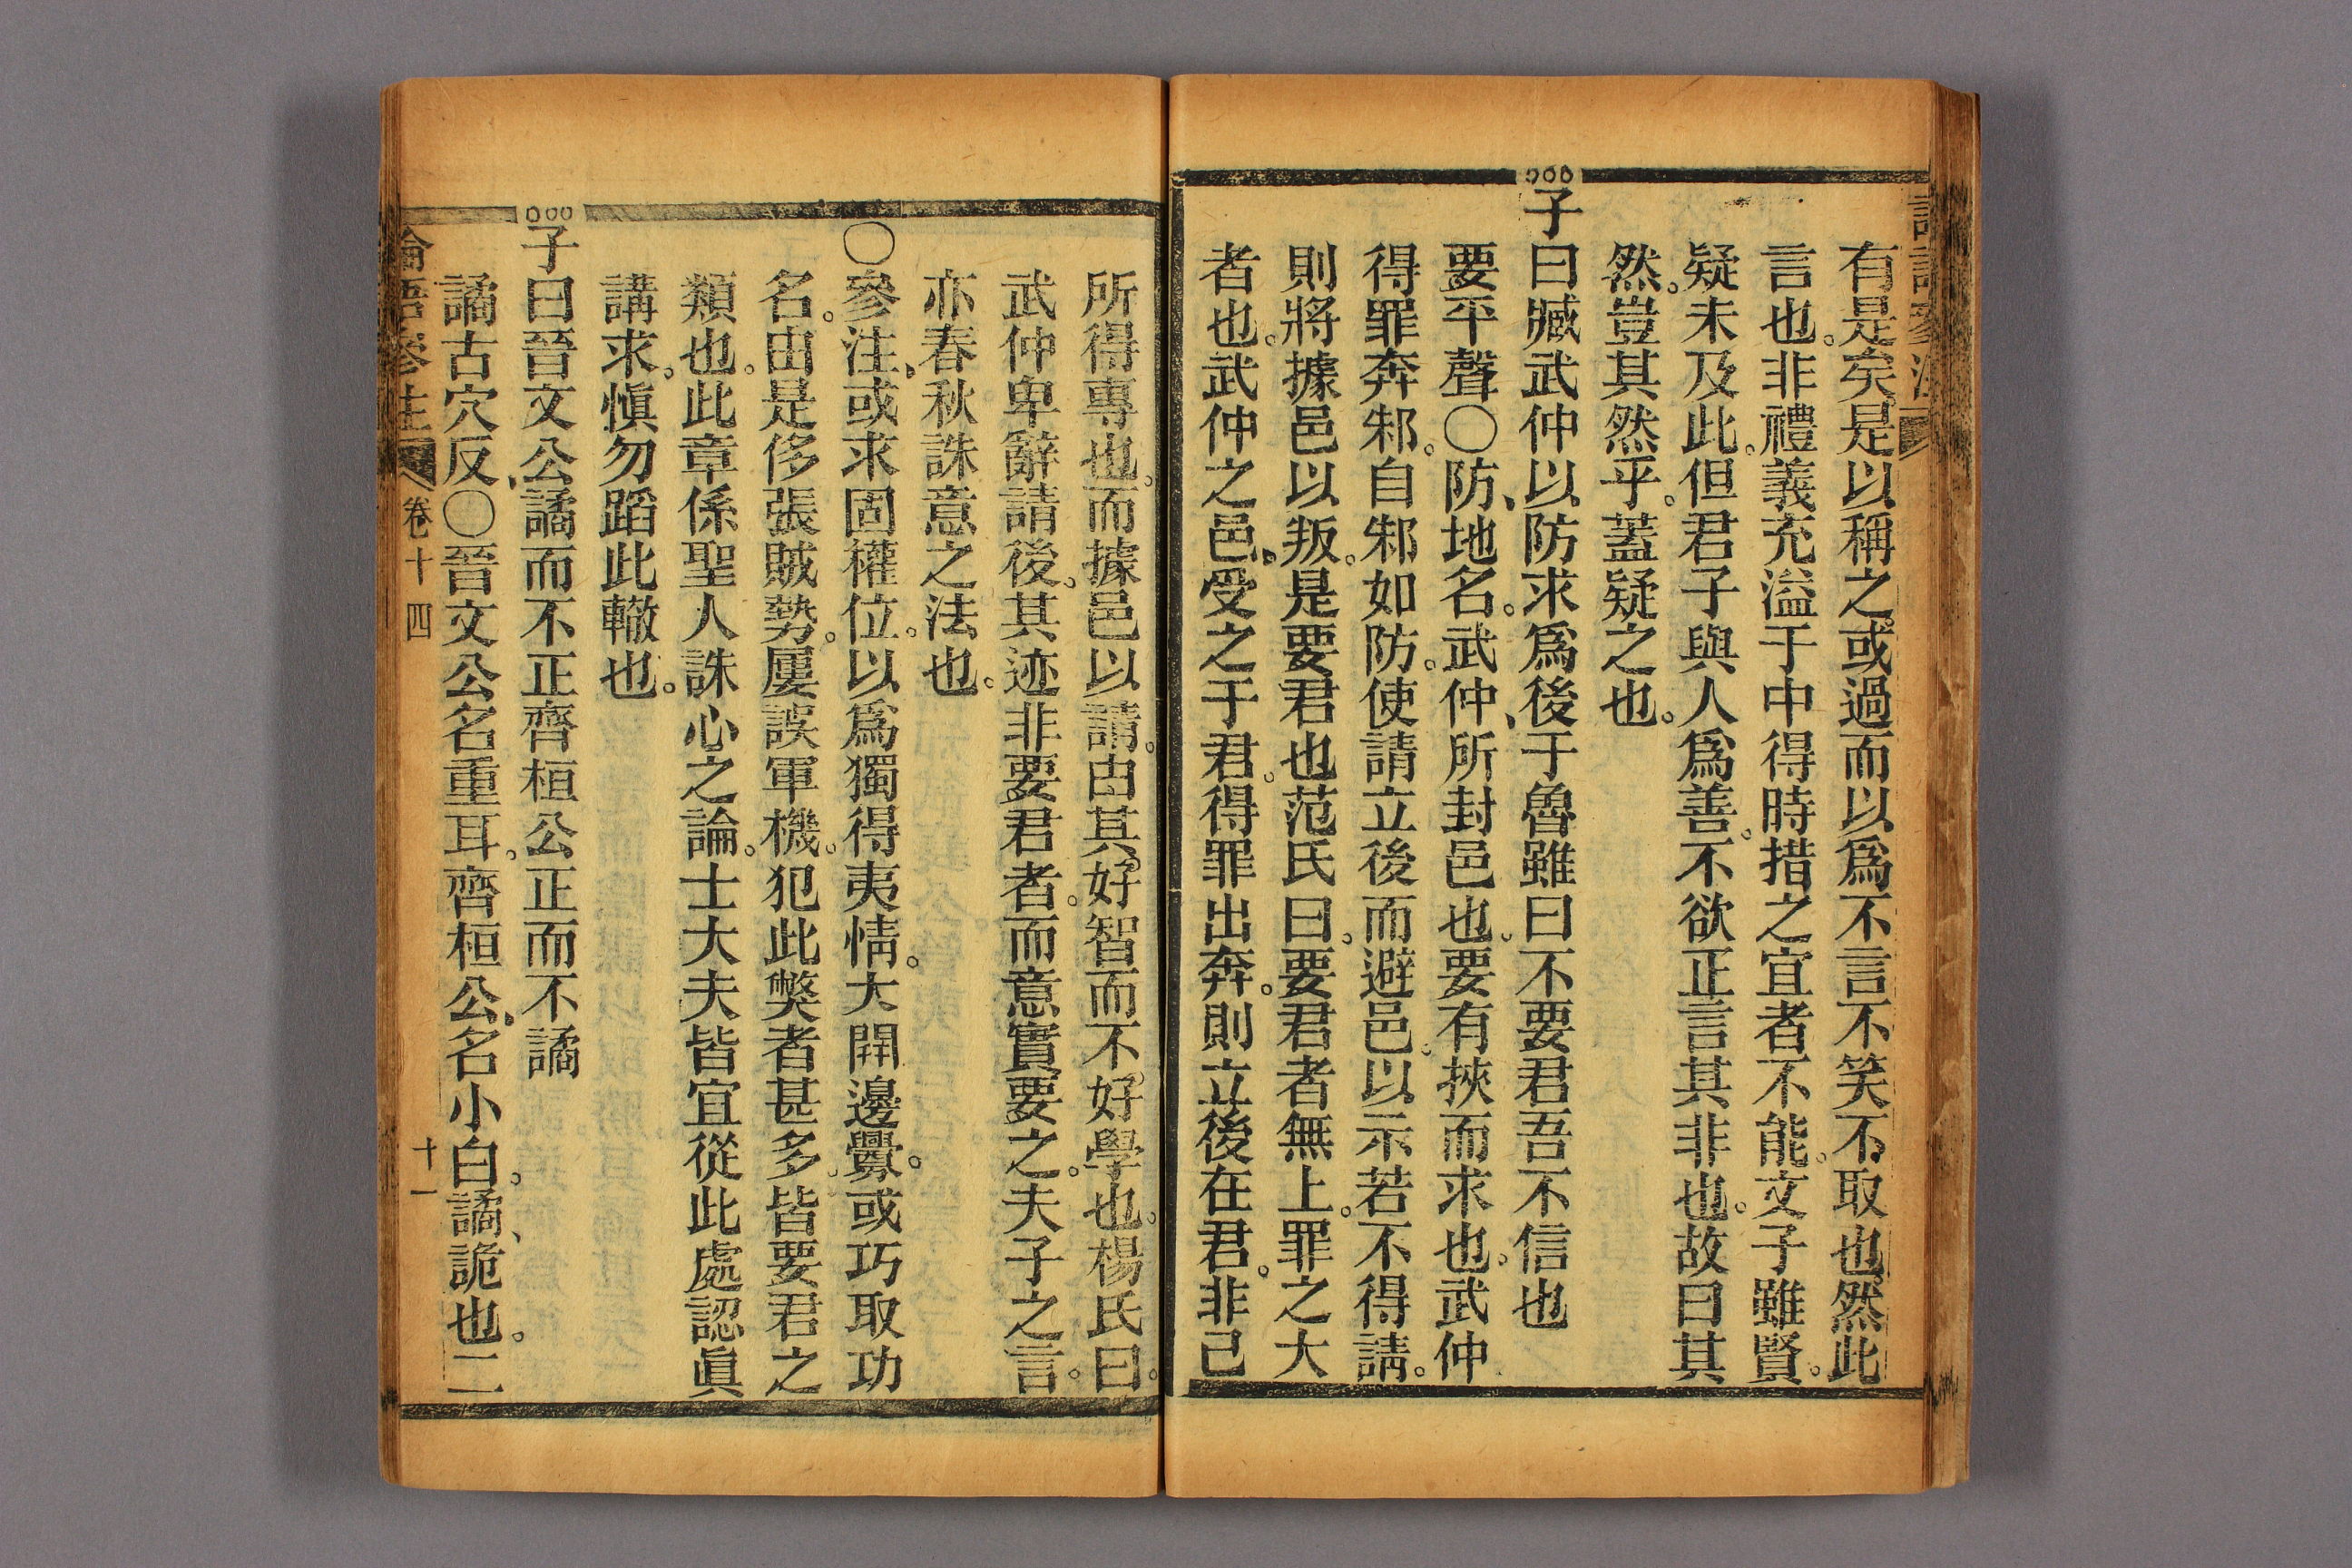 有是矣是以稱之。或過而以爲不言不笑不取也。然此
言也。非禮義充溢于中得時措之宜者不能。文子雖賢。
疑未及此。但君子與人爲善。不欲正言其非也。故曰其
然。豈其然乎。蓋疑之也。
子曰臧武仲以防求爲後于魯雖曰不要君吾不信也
要平聲〇防、地名。武仲、所封邑也。要有挾而求也。武仲
得罪奔邾。自邾如防。使請立後而避邑。以示若不得請。
則將據邑以叛。是要君也范氏曰。要君者無上。罪之大
者也。武仲之邑、受之于君。得罪出奔。則立後在君。非己
所得專也。而據邑以請。由其好智而不好學也。楊氏曰。
武仲卑辭請後。其迹非要君者。而意實要之。夫子之言。
亦春秋誅意之法也。
〇參注、或求固權位。以爲獨得夷情。大開邊釁。或巧取功
名。由是侈張賊勢。屢誤軍機。犯此獘者甚多。皆要君之
類也。此章係聖人誅心之論。士大夫皆宜從此處認眞
講求。愼勿蹈此轍也。
子曰晉文公譎而不正齊桓公正而不譎
譎古穴反、〇晉文公名重耳。齊桓公、名小白。譎、詭也。二
論語參注 卷十四 十一